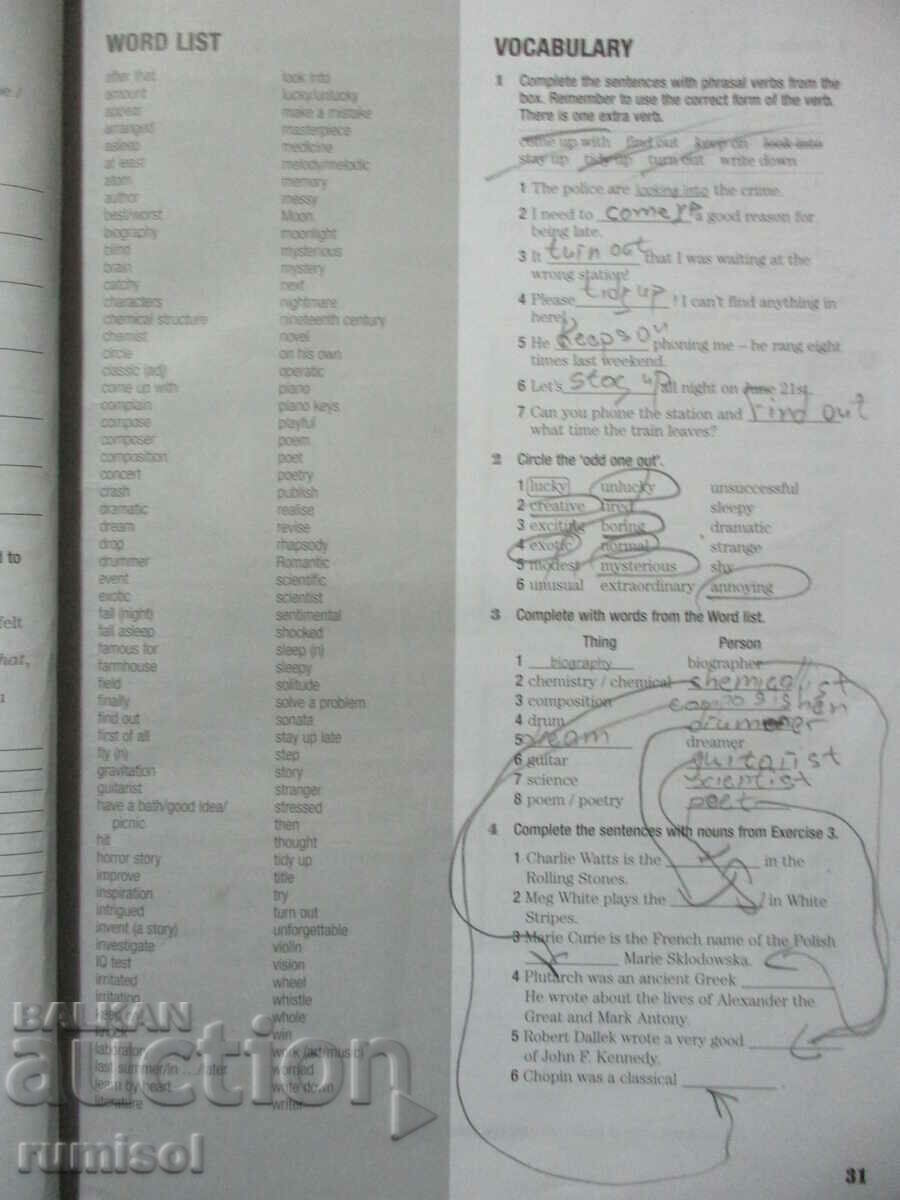 WORD LIST
after that
amount
appear
arranged
asleep
at least
atom
author
best/worst
biography
blind
brain
catchy
characters
chemical structure
chemist
circle
classic (adj)
come up with
complain
compose
composer
composition
concert
crash
dramatic
dream
drop
drummer
event
exotic
fall (night)
fall asleep
famous for
farmhouse
field
finally
find out
first of all
fly (n)
gravitation
guitarist
have a bath/good idea/
picnic
hit
horror story
improve
inspiration
intrigued
invent (a story)
investigate
IQ test
irritated
irritating
keep on
knock
laboratory
last summer/in .../later
learn by heart
literature
look into
lucky/unlucky
make a mistake
masterpiece
medicine
melody/melodic
memory
messy
Moon
moonlight
mysterious
mystery
next
nightmare
nineteenth century
novel
on his own
operatic
piano
piano keys
playful
poem
poet
poetry
publish
realise
revise
rhapsody
Romantic
scientific
scientist
sentimental
shocked
sleep (n)
sleepy
solitude
solve a problem
sonata
stay up late
step
story
stranger
stressed
then
thought
tidy up
title
try
turn out
unforgettable
violin
vision
wheel
whistle
whole
win
work (art/music)
worried
write down
writer
VOCABULARY
1 Complete the sentences with phrasal verbs from the
box. Remember to use the correct form of the verb.
There is one extra verb.
come up with find out keep on look into
stay up tidy up turn out write down
1 The police are looking into the crime.
2 I need to come a good reason for
being late.
3 It tuin out that I was waiting at the
wrong station!
4 Please tidy up ! I can't find anything in
here!
5 He keeps on phoning me – he rang eight
times last weekend.
6 Let's stay up all night on June 21st.
7 Can you phone the station and find out
what time the train leaves?
2 Circle the 'odd one out'.
1 lucky unlucky unsuccessful
2 creative tired sleepy
3 exciting boring dramatic
4 exotic normal strange
5 modest mysterious shy
6 unusual extraordinary annoying
3 Complete with words from the Word list.
Thing Person
1 biography biographer
2 chemistry / chemical
3 composition
4 drum
5 dream dreamer
6 guitar guitarist
7 science scientist
8 poem / poetry poet
4 Complete the sentences with nouns from Exercise 3.
1 Charlie Watts is the in the
Rolling Stones.
2 Meg White plays the in White
Stripes.
3 Marie Curie is the French name of the Polish
Marie Sklodowska.
4 Plutarch was an ancient Greek
He wrote about the lives of Alexander the
Great and Mark Antony.
5 Robert Dallek wrote a very good
of John F. Kennedy.
6 Chopin was a classical
31
BALKAN
auction
rumisol